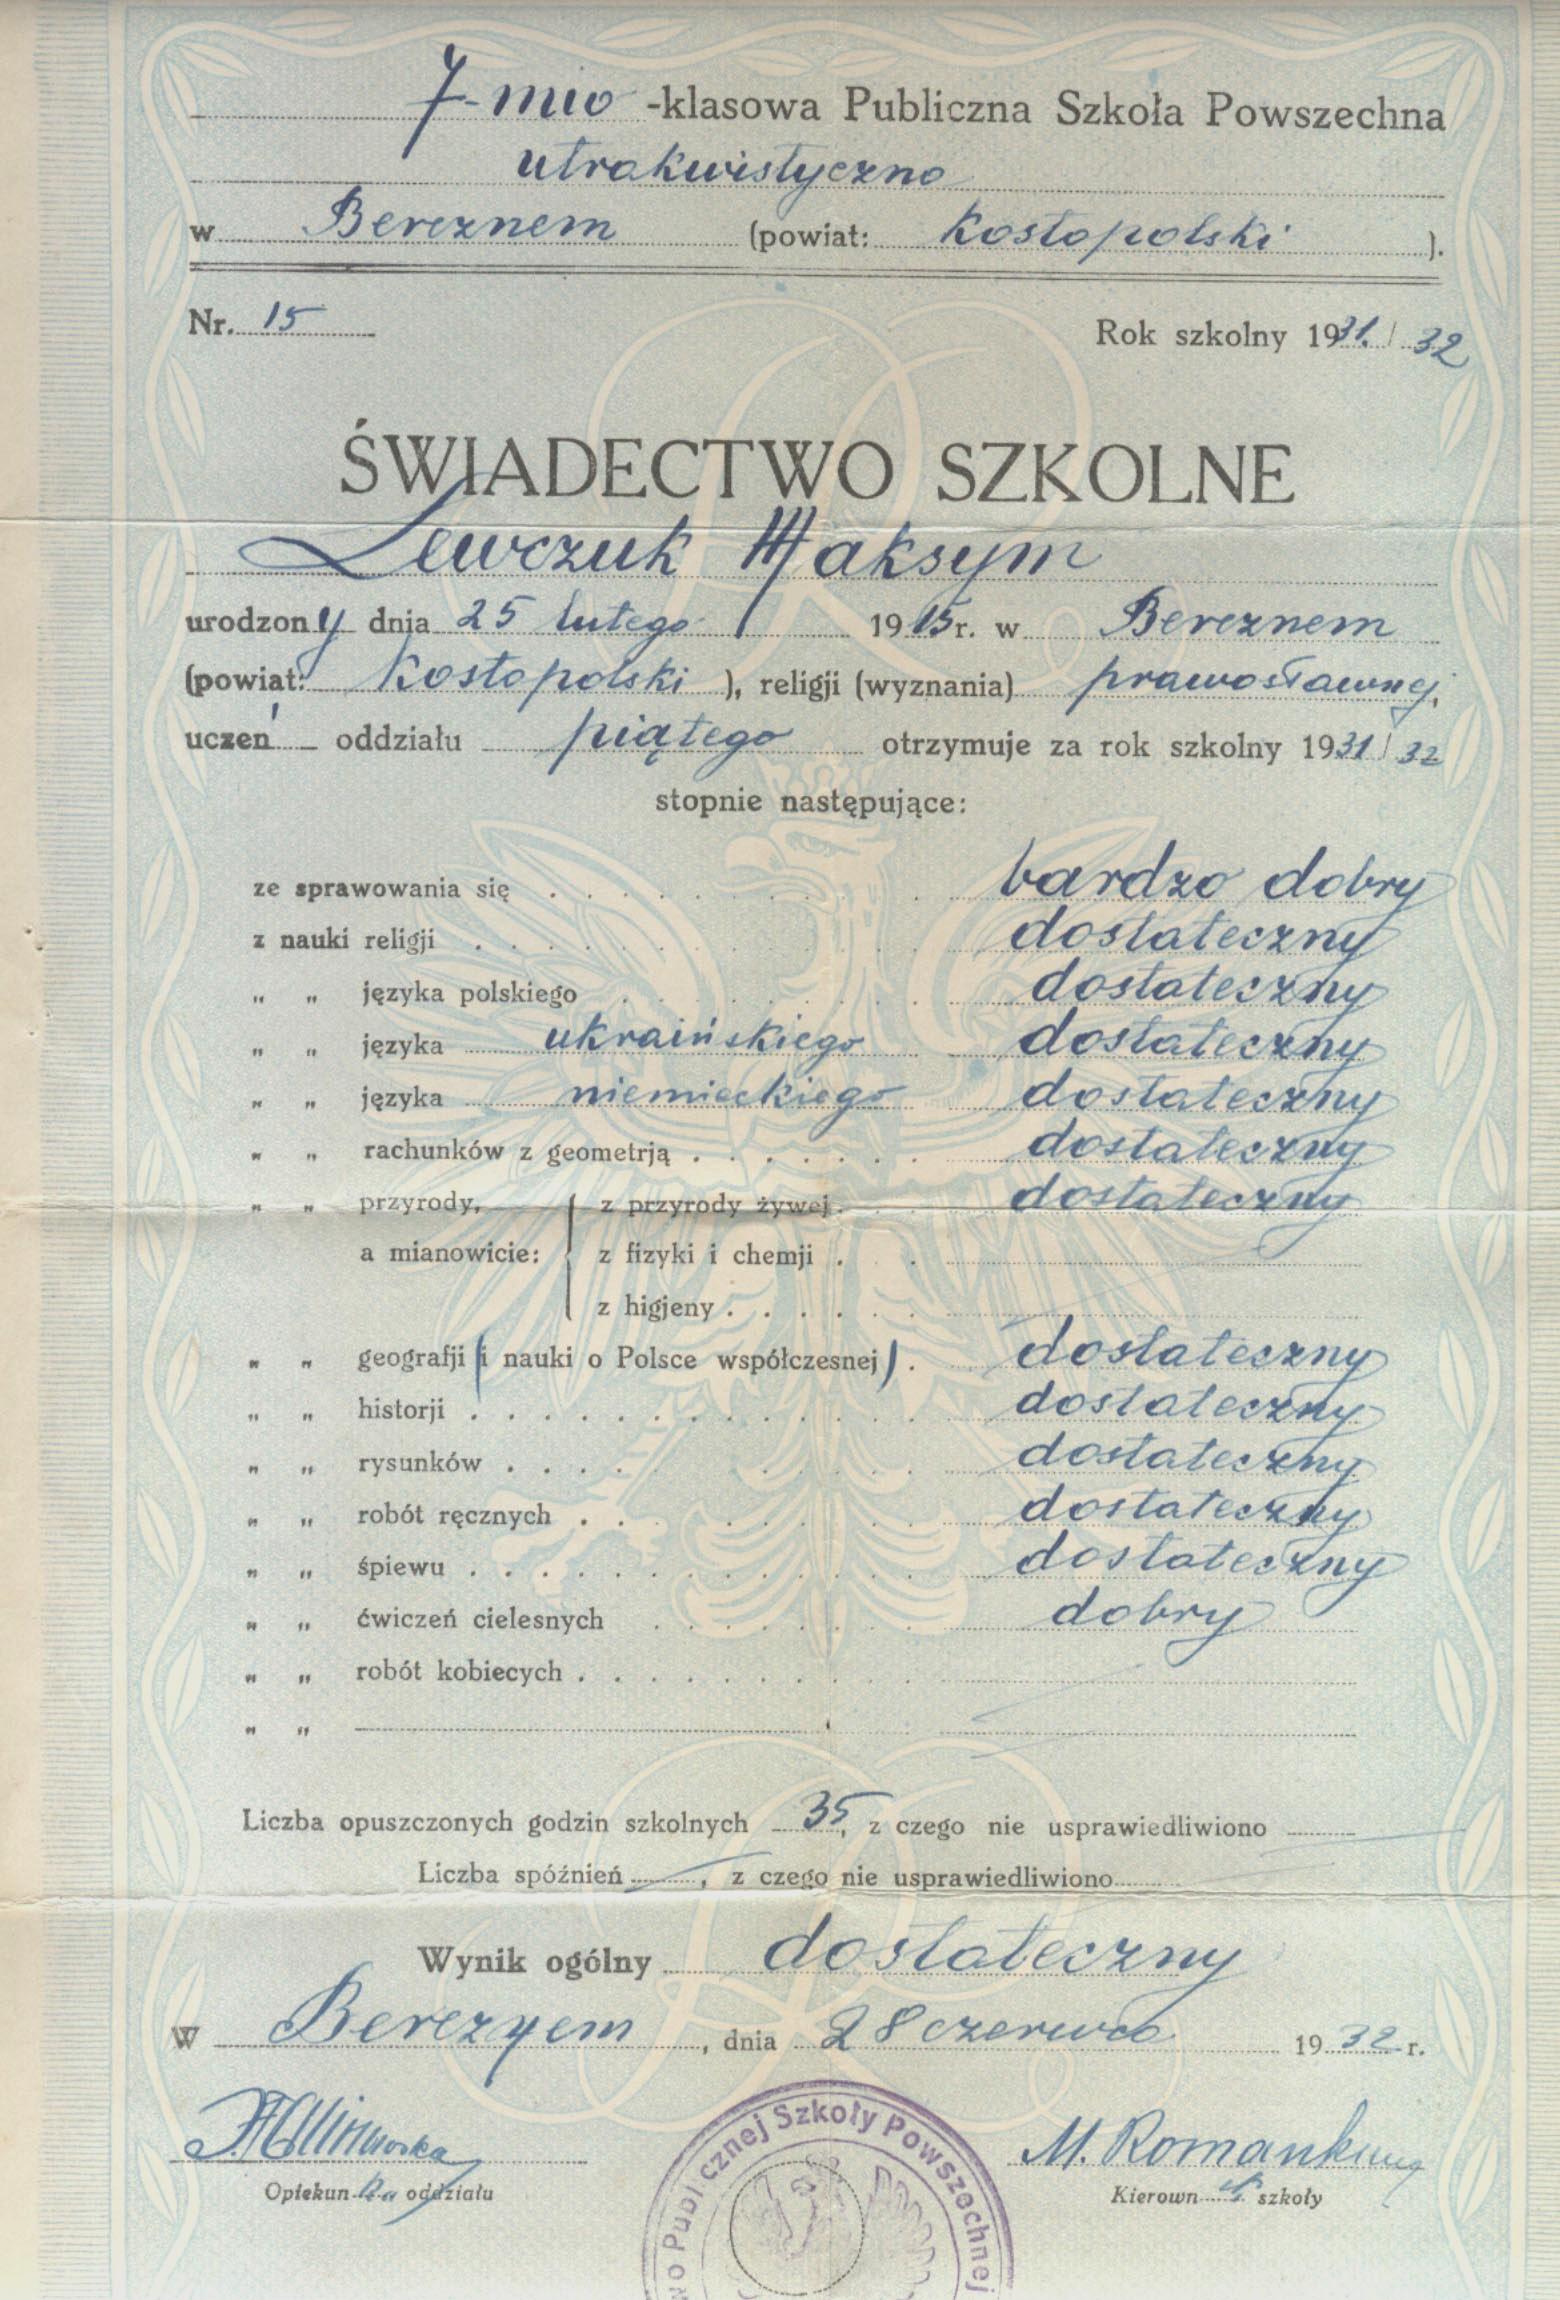 7-mio -klasowa Publiczna Szkoła Powszechna
utrakwistyczna
w Bereznem (powiat: Kostopolski ).
Nr. 15 Rok szkolny 1931. / 32
ŚWIADECTWO SZKOLNE
Lewczuk Maksym
urodzony dnia 25 lutego 1915 r. w Bereznem
(powiat: Kostopolski ), religji (wyznania) prawosławnej,
uczeń oddziału piątego otrzymuje za rok szkolny 1931 / 32
stopnie następujące:
ze sprawowania się . . . . . . . . bardzo dobry
z nauki religji . . . . . . . . . dostateczny
„ „ języka polskiego . . . . . . . dostateczny
„ „ języka ukraińskiego dostateczny
„ „ języka niemieckiego dostateczny
„ „ rachunków z geometrją . . . . . . . dostateczny
„ „ przyrody, z przyrody żywej . . . dostateczny
a mianowicie: z fizyki i chemji . . .
z higjeny . . . . . .
„ „ geografji (i nauki o Polsce współczesnej) . dostateczny
„ „ historji . . . . . . . . . . . . dostateczny
„ „ rysunków . . . . . . . . . . dostateczny
„ „ robót ręcznych . . . . . . . . dostateczny
„ „ śpiewu . . . . . . . . . . . . dostateczny
„ „ ćwiczeń cielesnych . . . . . . . dobry
„ „ robót kobiecych . . . . . . . . . .
„ „
Liczba opuszczonych godzin szkolnych 35, z czego nie usprawiedliwiono
Liczba spóźnień , z czego nie usprawiedliwiono
Wynik ogólny dostateczny
W Bereznem , dnia 28 czerwca 1932 r.
M. Romankiw
Opiekunka oddziału Kierown szkoły
wo Publicznej Szkoły Powszechnej